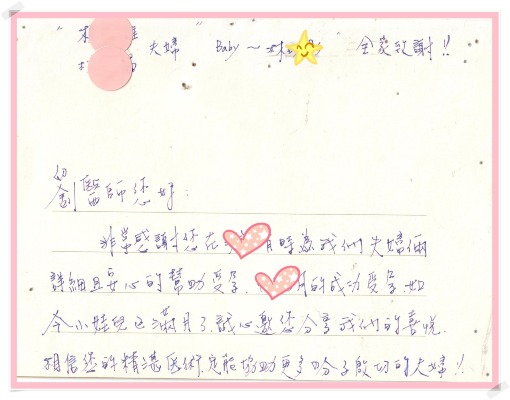 夫婦 Baby～ 全家致謝!!
劉醫師您好：
非常感謝您在 有時為我們夫婦倆
詳細且安心的幫助受孕。 月的成功受孕如
今小娃兒已滿月了，誠心邀您分享我們的喜悅，
相信您的精湛醫術，定能協助更多 的夫婦!!